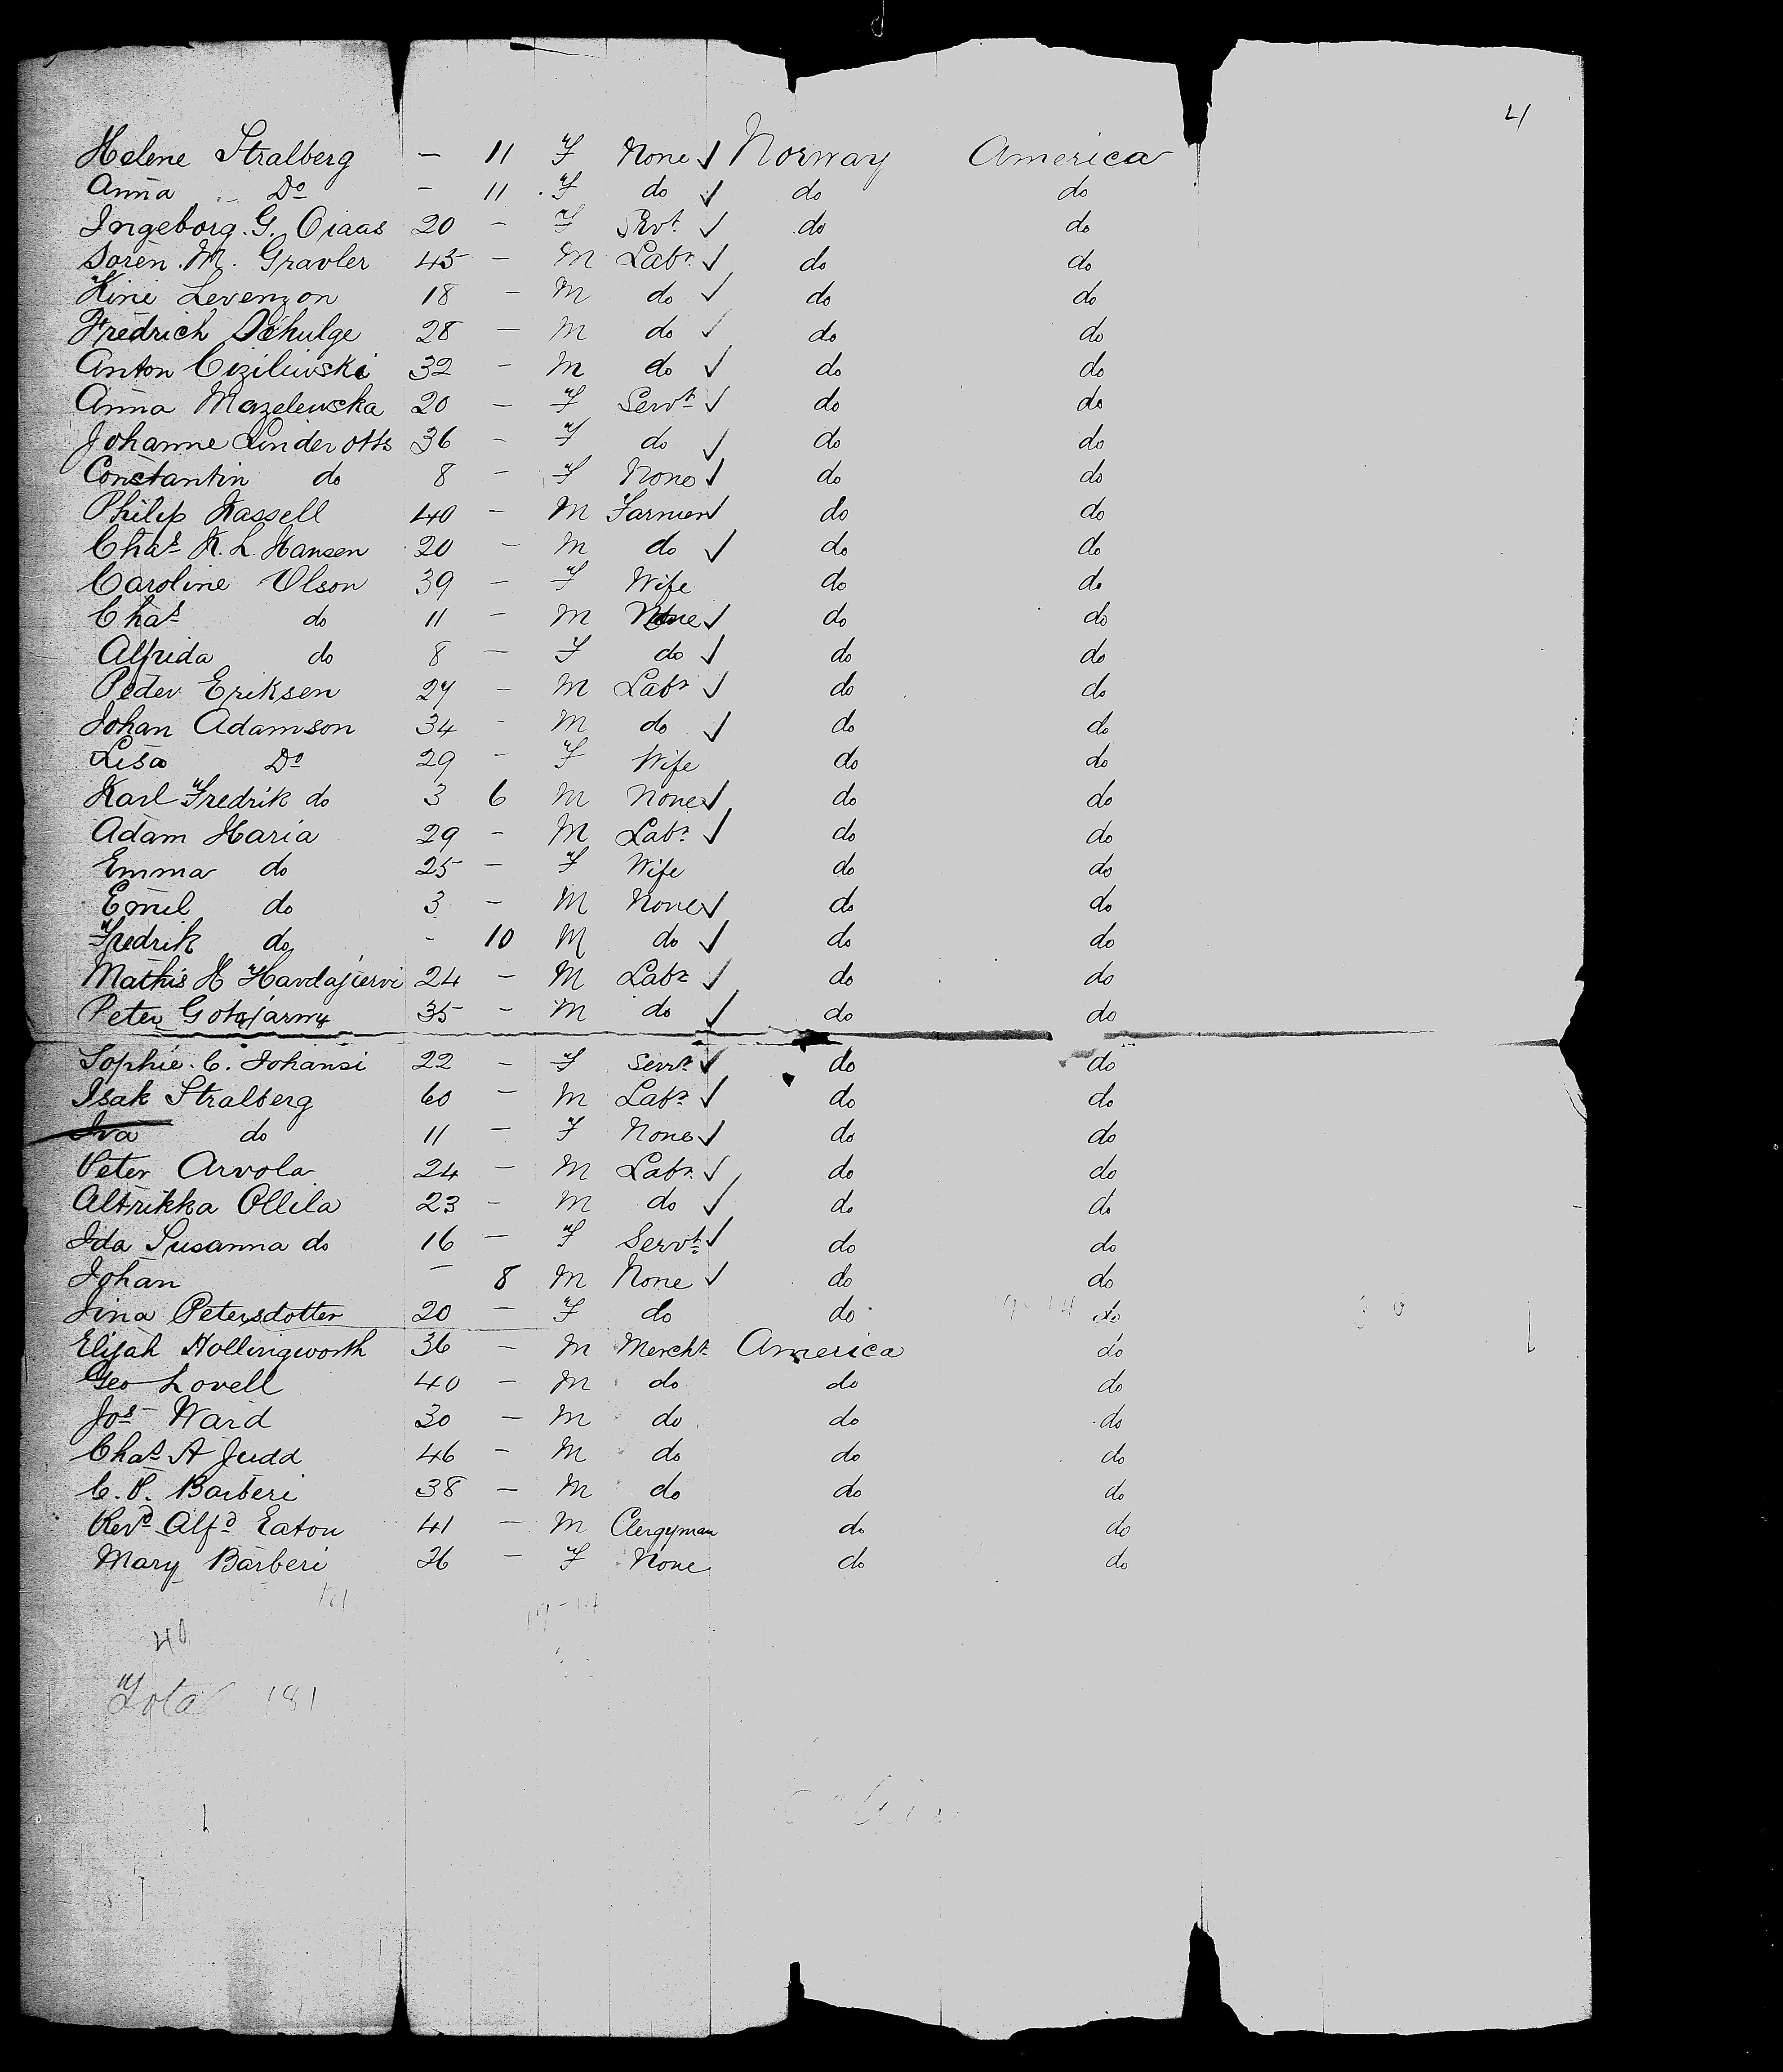 4
Helene Stralberg — 11 F None ✓ Norway America
Anna Do — 11 F do ✓ do do
Ingeborg. G. Oiaas 20 — F Srvt ✓ do do
Soren. M. Gravler 45 — M Labr ✓ do do
Kini Levenzon 18 — M do ✓ do do
Fredrich Schulge 28 — M do ✓ do do
Anton Cizilewski 32 — M do ✓ do do
Anna Mazelewska 20 — F Servt ✓ do do
Johanne Linderotts 36 — F do ✓ do do
Constantin do 8 — F None ✓ do do
Philip Kassell 40 — M Farmer ✓ do do
Chas K. L. Hansen 20 — M do ✓ do do
Caroline Olson 39 — F Wife do do
Chas do 11 — M None ✓ do do
Alfrida do 8 — F do ✓ do do
Peder Eriksen 27 — M Labr ✓ do do
Johan Adamson 34 — M do ✓ do do
Lisa Do 29 — F Wife do do
Karl Fredrik do 3 6 M None ✓ do do
Adam Haria 29 — M Labr ✓ do do
Emma do 25 — F Wife do do
Emil do 3 — M None ✓ do do
Fredrik do — 10 M do ✓ do do
Mathis H Havdajiervi 24 — M Labr ✓ do do
Peter 35 — M do ✓ do do
Sophie. C. Johansi 22 — F Servt ✓ do do
Isak Stralberg 60 — M Labr ✓ do do
Iva do 11 — F None ✓ do do
Peter Arvola 24 — M Labr ✓ do do
Altrikka Ollila 23 — M do ✓ do do
Ida Susanna do 16 — F Servt ✓ do do
Johan — 8 M None ✓ do do
Jina Petersdotter 20 — F do do do
Elijah Hollingworth 36 — M Mercht America do
Geo Lovell 40 — M do do do
Jos Ward 30 — M do do do
Chas A Judd 46 — M do do do
C. P. Barberi 38 — M do do do
Revd Alfd Eaton 41 — M Clergyman do do
Mary Barberi 26 — F None do do
181
40
Total 181